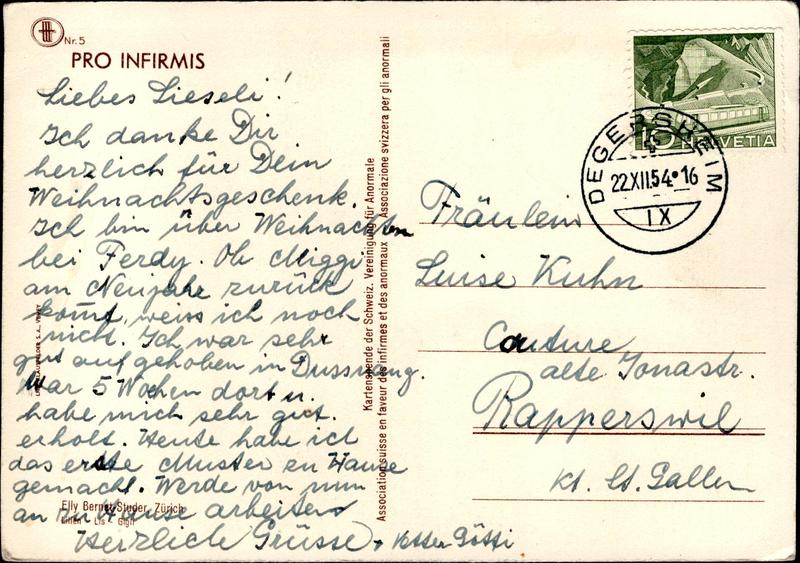 Nr. 5
PRO INFIRMIS
Liebes Lieseli!
Ich danke Dir
herzlich für Dein
Weihnachtsgeschenk.
Ich bin über Weihnachten
bei Ferdy. Ob Miggi
am Neujahr zurück
kommt, weiss ich noch
nicht. Ich war sehr
gut aufgehoben in Dussnang.
War 5 Wochen dort u.
habe mich sehr gut
erholt. Heute habe ich
das erste Muster zu Hause
gemacht. Werde von nun
an zu Hause arbeiten
Herzliche Grüsse + Götti
Elly Bernet-Studer, Zürich
Kartenspende der Schweiz. Vereinigung für Anormale
Association suisse en faveur des infirmes et des anormaux Associazione svizzera per gli anormali
10 HELVETIA
DEGERSHEIM
22.XII.54.-16
IX
Fräulein
Luise Kuhn
Couture
alte Jonastr.
Rapperswil
Kt. St. Gallen